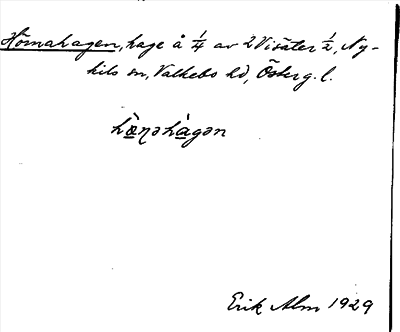 Hörnahagen, hage å 1/4 av 2 Visäter 1/2, Ny-
kils sn, Valkebo hd, Österg. l.
hö̀ṇəhágən
Erik Alm 1929